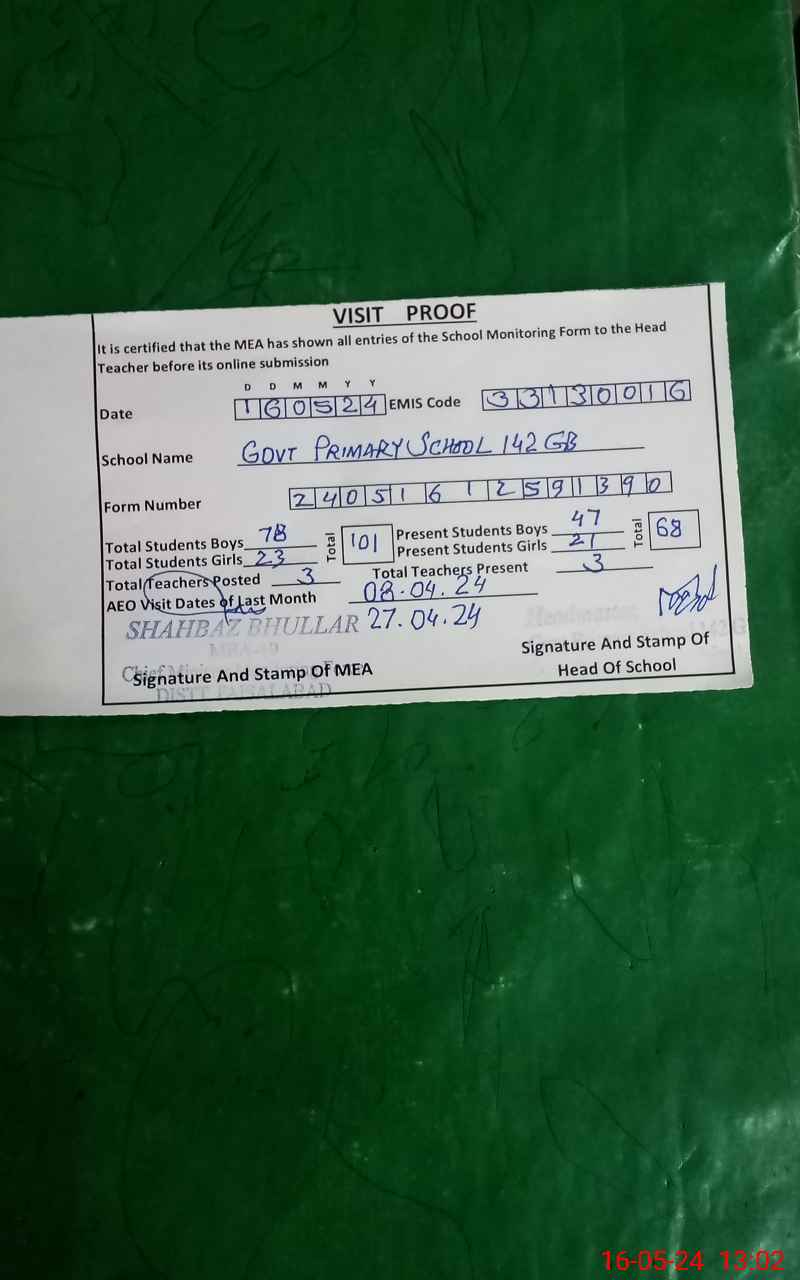 VISIT PROOF
It is certified that the MEA has shown all entries of the School Monitoring Form to the Head
Teacher before its online submission
D D M M Y Y
Date 160524 EMIS Code 33130016
School Name GOVT PRIMARY SCHOOL 142 GB
Form Number 24051612591390
Total Students Boys 78 Total 101 Present Students Boys 47 Total 68
Total Students Girls 23 Present Students Girls 21
Total Teachers Posted 3 Total Teachers Present 3
AEO Visit Dates of Last Month 08.04.24
SHAHBAZ BHULLAR 27.04.24
Headmaster
Signature And Stamp Of MEA
DISTT FAISALABAD
Signature And Stamp Of
Head Of School
16-05-24 13:02